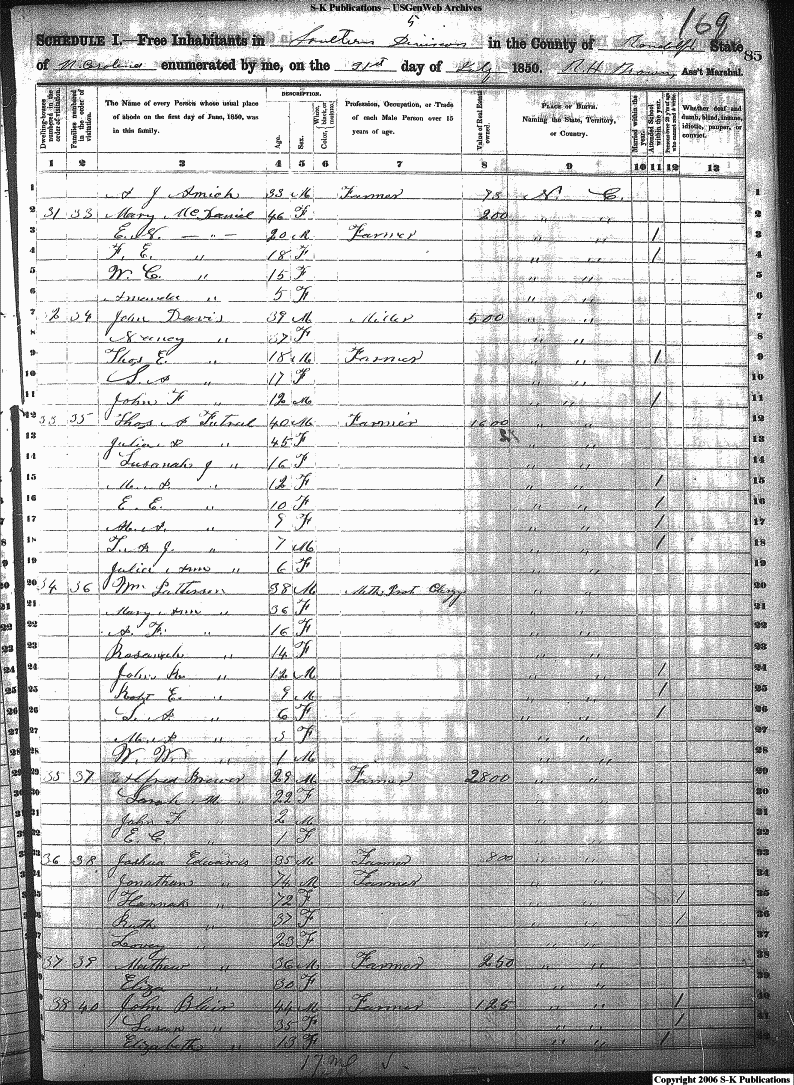 S-K Publications – USGenWeb Archives
5
169
SCHEDULE I.—Free Inhabitants in Southern Division in the County of Randolph State 85
of N Carolina enumerated by me, on the 31st day of July 1850. Ass't Marshal.
Dwelling-houses numbered in the order of visitation.
Families numbered in the order of visitation.
The Name of every Person whose usual place of abode on the first day of June, 1850, was in this family.
DESCRIPTION.
Age.
Sex.
Color, White, black, or mulatto.
Profession, Occupation, or Trade of each Male Person over 15 years of age.
Value of Real Estate owned.
PLACE OF BIRTH. Naming the State, Territory, or Country.
Married within the year.
Attended School within the year.
Persons over 20 y'rs of age who cannot read & write.
Whether deaf and dumb, blind, insane, idiotic, pauper, or convict.
1 2 3 4 5 6 7 8 9 10 11 12 13
1 A J Amick 33 M Farmer 78 N. C. 1
2 31 33 Mary McDaniel 46 F 200 " " 2
3 E. N. — " — 20 M Farmer " " / 3
4 F. E. " 18 F " " / 4
5 W. C. " 15 F " " 5
6 Amanda " 5 F " " 6
7 32 34 John Davis 39 M Miller 500 " " 7
8 Nancy " 37 F " " 8
9 Thos E. " 18 M Farmer " " / 9
10 S. A " 17 F " " 10
11 John F " 12 M " " / 11
12 33 35 Thos A Futrel 40 M Farmer 1600 " " 12
13 Julia A " 45 F " " 13
14 Susanah J " 16 F " " 14
15 M. A. " 12 F " " / 15
16 E. E. " 10 F " " / 16
17 M. A. " 9 F " " / 17
18 T. A J. " 7 M " " / 18
19 Julia Ann " 6 F " " 19
20 34 36 Wm Patterson 38 M Meth. Prot Clergy " " 20
21 Mary Ann " 36 F " " 21
22 A. F. " 16 F " " 22
23 Rosannah " 14 F " " 23
24 John " 12 M " " / 24
25 Robt E. " 9 M " " / 25
26 L. A " 6 F " " / 26
27 M. A " 3 F " " 27
28 W. W. " 1 M " " 28
29 35 37 Alfred Brower 29 M Farmer 2800 " " 29
30 Sarah M " 22 F " " 30
31 John F. " 2 M " " 31
32 E. C. " 1 F " " 32
33 36 38 Joshua Edwards 35 M Farmer 800 " " 33
34 Jonathan " 74 M Farmer " " 34
35 Hannah " 72 F " " / 35
36 Ruth " 37 F " " / 36
37 " 23 F " " 37
38 37 39 Mathew " 36 M Farmer 250 " " 38
39 Eliza " 30 F " " 39
40 38 40 John Blair 44 M Farmer 125 " " / 40
41 Susan " 35 F " " / 41
42 Elizabeth " 13 F " " / 42
Copyright 2006 S-K Publications